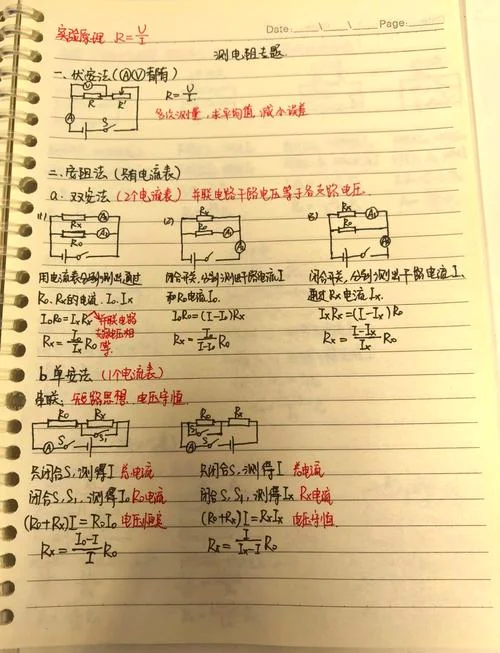 实验原理 R=U/I
Date: Page:
测电阻专题
一、伏安法(Ⓐ Ⓥ都有)
R=U/I
多次测量,求平均值,减小误差
二、安阻法 (只有电流表)
a. 双安法 (2个电流表) 并联电路干路电压等于各支路电压
(1) (2) (3)
用电流表分别测出通过 R0、Rx的电流 I0、Ix
I0R0=IxRx 并联电路支路电压相等
Rx=I0/Ix R0
闭合开关,分别测出干路电流I和R0电流I0
I0R0=(I-I0)Rx
Rx=I0/(I-I0) R0
闭合开关,分别测出干路电流I、通过Rx电流Ix
IxRx=(I-Ix)R0
Rx=(I-Ix)/Ix R0
b 单安法 (1个电流表)
串联、短路思想、电压守恒
只闭合S,测得I 总电流
闭合S、S1,测得I0 R0电流
(R0+Rx)I=R0I0 电压恒定
Rx=(I0-I)/I R0
只闭合S,测得I 总电流
闭合S、S1,测得Ix Rx电流
(R0+Rx)I=RxIx 电压守恒
Rx=I/(Ix-I) R0